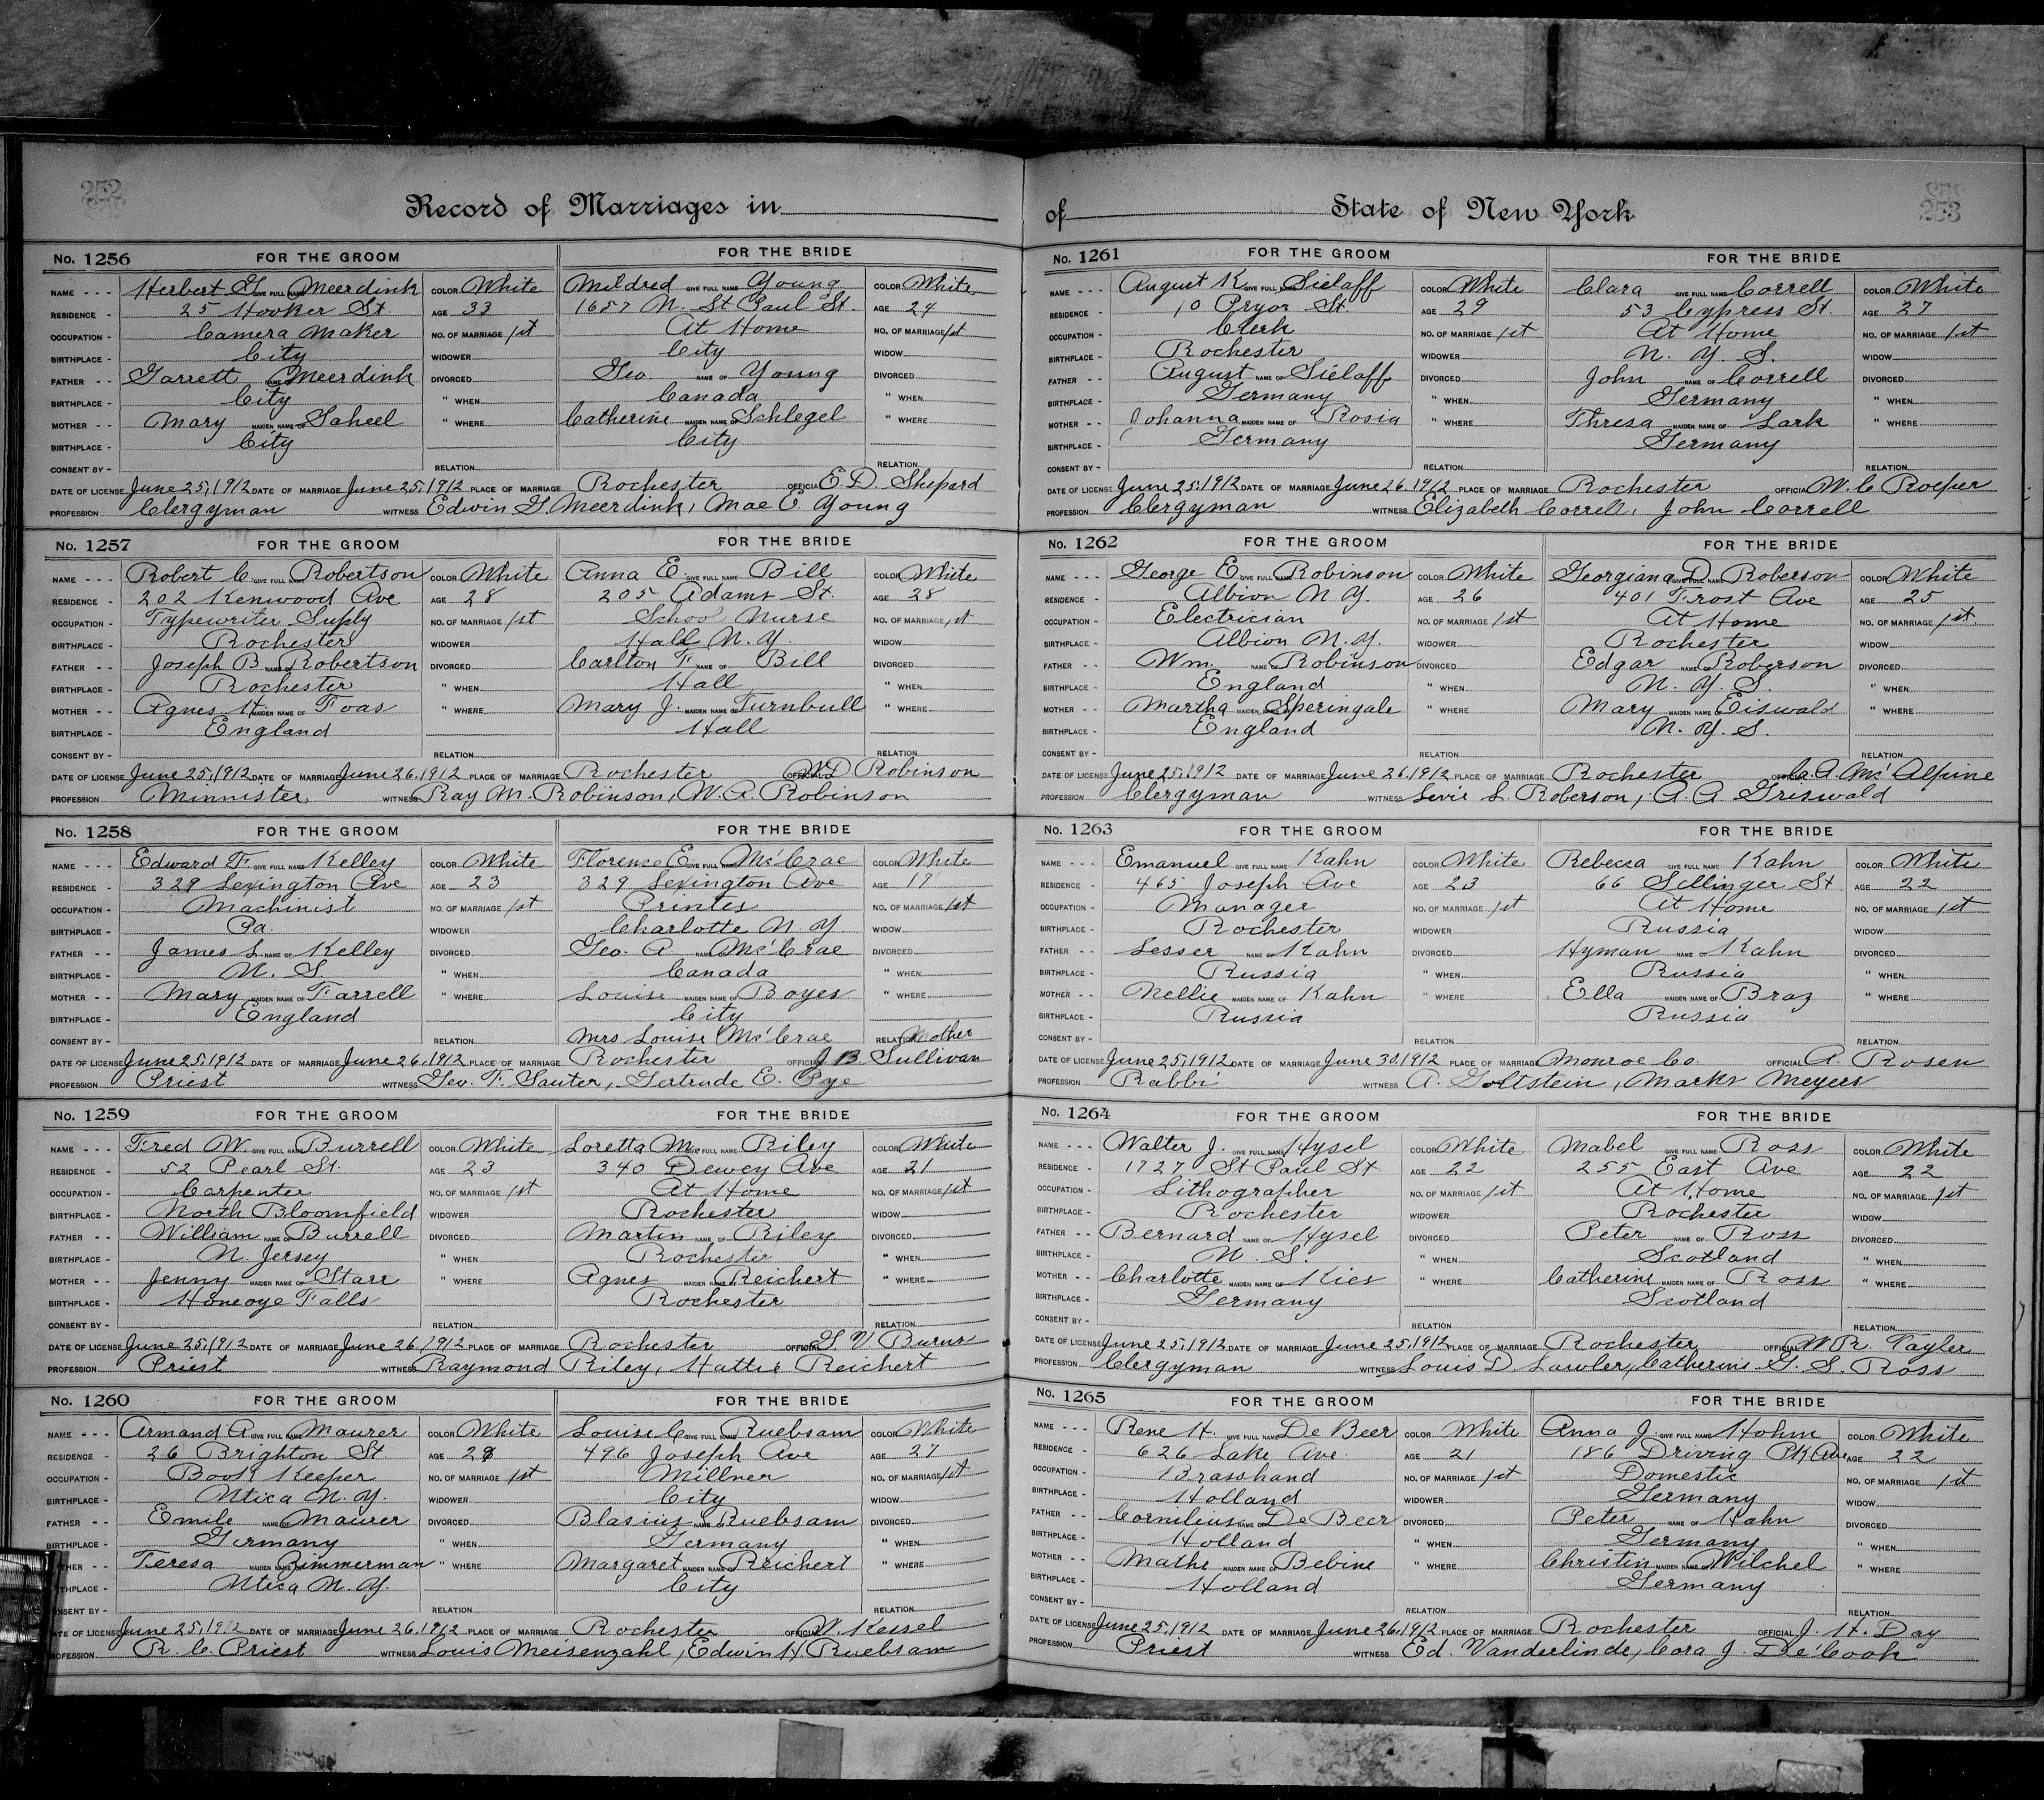 252
Record of Marriages in
No. 1256 FOR THE GROOM FOR THE BRIDE
NAME - - - Herbert G. GIVE FULL NAME Meerdink COLOR White Mildred GIVE FULL NAME Young COLOR White
RESIDENCE - 25 Hooker St. AGE 33 1657 N. St Paul St. AGE 24
OCCUPATION - Camera Maker NO. OF MARRIAGE 1st At Home NO. OF MARRIAGE 1st
BIRTHPLACE - City WIDOWER City WIDOW
FATHER - - Garrett NAME OF Meerdink DIVORCED Geo. NAME OF Young DIVORCED
BIRTHPLACE - City " WHEN Canada " WHEN
MOTHER - - Mary MAIDEN NAME OF Saheel " WHERE Catherine MAIDEN NAME OF Schlegel " WHERE
BIRTHPLACE - City City
CONSENT BY - RELATION RELATION
DATE OF LICENSE June 25, 1912 DATE OF MARRIAGE June 25, 1912 PLACE OF MARRIAGE Rochester OFFICIAL E. D. Shepard
PROFESSION Clergyman WITNESS Edwin G. Meerdink, Mae E. Young
No. 1257 FOR THE GROOM FOR THE BRIDE
NAME - - - Robert C. GIVE FULL NAME Robertson COLOR White Anna E. GIVE FULL NAME Bill COLOR White
RESIDENCE - 202 Kenwood Ave AGE 28 205 Adams St. AGE 28
OCCUPATION - Typewriter Suply NO. OF MARRIAGE 1st School Nurse NO. OF MARRIAGE 1st
BIRTHPLACE - Rochester WIDOWER Hall N. Y. WIDOW
FATHER - - Joseph B. NAME OF Robertson DIVORCED Carlton F. NAME OF Bill DIVORCED
BIRTHPLACE - Rochester " WHEN Hall " WHEN
MOTHER - - Agnes H. MAIDEN NAME OF Foas " WHERE Mary J. MAIDEN NAME OF Turnbull " WHERE
BIRTHPLACE - England Hall
CONSENT BY - RELATION RELATION
DATE OF LICENSE June 25, 1912 DATE OF MARRIAGE June 26, 1912 PLACE OF MARRIAGE Rochester OFFICIAL W D Robinson
PROFESSION Minnister WITNESS Ray M. Robinson, W. A. Robinson
No. 1258 FOR THE GROOM FOR THE BRIDE
NAME - - - Edward F. GIVE FULL NAME Kelley COLOR White Florence E. GIVE FULL NAME McCrae COLOR White
RESIDENCE - 329 Lexington Ave AGE 23 329 Lexington Ave AGE 17
OCCUPATION - Machinist NO. OF MARRIAGE 1st Printer NO. OF MARRIAGE 1st
BIRTHPLACE - Pa. WIDOWER Charlotte N. Y. WIDOW
FATHER - - James L. NAME OF Kelley DIVORCED Geo. A. NAME OF McCrae DIVORCED
BIRTHPLACE - U. S. " WHEN Canada " WHEN
MOTHER - - Mary MAIDEN NAME OF Farrell " WHERE Louise MAIDEN NAME OF Boyer " WHERE
BIRTHPLACE - England City
CONSENT BY - RELATION Mrs Louise McCrae RELATION Mother
DATE OF LICENSE June 25, 1912 DATE OF MARRIAGE June 26, 1912 PLACE OF MARRIAGE Rochester OFFICIAL J B Sullivan
PROFESSION Priest WITNESS Geo. F. Sauter, Gertrude E. Pye
No. 1259 FOR THE GROOM FOR THE BRIDE
NAME - - - Fred W. GIVE FULL NAME Burrell COLOR White Loretta M. GIVE FULL NAME Riley COLOR White
RESIDENCE - 52 Pearl St. AGE 23 340 Dewey Ave AGE 21
OCCUPATION - Carpenter NO. OF MARRIAGE 1st At Home NO. OF MARRIAGE 1st
BIRTHPLACE - North Bloomfield WIDOWER Rochester WIDOW
FATHER - - William NAME OF Burrell DIVORCED Martin NAME OF Riley DIVORCED
BIRTHPLACE - N. Jersey " WHEN Rochester " WHEN
MOTHER - - Jenny MAIDEN NAME OF Starr " WHERE Agnes MAIDEN NAME OF Reichert " WHERE
BIRTHPLACE - Honeoye Falls Rochester
CONSENT BY - RELATION RELATION
DATE OF LICENSE June 25, 1912 DATE OF MARRIAGE June 26, 1912 PLACE OF MARRIAGE Rochester OFFICIAL G. V. Burns
PROFESSION Priest WITNESS Raymond Riley, Hattie Reichert
No. 1260 FOR THE GROOM FOR THE BRIDE
NAME - - - Armand A. GIVE FULL NAME Maurer COLOR White Louise C. GIVE FULL NAME Ruebsam COLOR White
RESIDENCE - 26 Brighton St AGE 28 496 Joseph Ave AGE 27
OCCUPATION - Book Keeper NO. OF MARRIAGE 1st Millner NO. OF MARRIAGE 1st
BIRTHPLACE - Utica N. Y. WIDOWER City WIDOW
FATHER - - Emile NAME OF Maurer DIVORCED Blasius NAME OF Ruebsam DIVORCED
BIRTHPLACE - Germany " WHEN Germany " WHEN
MOTHER - - Teresa MAIDEN Zimmerman " WHERE Margaret MAIDEN NAME OF Reichert " WHERE
BIRTHPLACE - Utica N. Y. City
CONSENT BY - RELATION RELATION
DATE OF LICENSE June 25, 1912 DATE OF MARRIAGE June 26, 1912 PLACE OF MARRIAGE Rochester OFFICIAL W. Kessel
PROFESSION R. C. Priest WITNESS Louis Meisenzahl, Edwin H. Ruebsam
253
of State of New York
No. 1261 FOR THE GROOM FOR THE BRIDE
NAME - - - August K. GIVE FULL NAME Sielaff COLOR White Clara GIVE FULL NAME Correll COLOR White
RESIDENCE - 10 Pryor St. AGE 29 53 Cypress St. AGE 27
OCCUPATION - Clerk NO. OF MARRIAGE 1st At Home NO. OF MARRIAGE 1st
BIRTHPLACE - Rochester WIDOWER N. Y. S. WIDOW
FATHER - - August NAME OF Sielaff DIVORCED John NAME OF Correll DIVORCED
BIRTHPLACE - Germany " WHEN Germany " WHEN
MOTHER - - Johanna MAIDEN NAME OF Rosia " WHERE Thresa MAIDEN NAME OF Lark " WHERE
BIRTHPLACE - Germany Germany
CONSENT BY - RELATION RELATION
DATE OF LICENSE June 25, 1912 DATE OF MARRIAGE June 26, 1912 PLACE OF MARRIAGE Rochester OFFICIAL W. C Roeper
PROFESSION Clergyman WITNESS Elizabeth Correll, John Correll
No. 1262 FOR THE GROOM FOR THE BRIDE
NAME - - - George E. GIVE FULL NAME Robinson COLOR White Georgiana D GIVE FULL NAME Roberson COLOR White
RESIDENCE - Albion N. Y. AGE 26 401 Frost Ave AGE 25
OCCUPATION - Electrician NO. OF MARRIAGE 1st At Home NO. OF MARRIAGE 1st
BIRTHPLACE - Albion N. Y. WIDOWER Rochester WIDOW
FATHER - - Wm. NAME OF Robinson DIVORCED Edgar NAME OF Roberson DIVORCED
BIRTHPLACE - England " WHEN N. Y. S. " WHEN
MOTHER - - Martha MAIDEN NAME Speringale " WHERE Mary MAIDEN NAME Eiswald " WHERE
BIRTHPLACE - England N. Y. S.
CONSENT BY - RELATION RELATION
DATE OF LICENSE June 25, 1912 DATE OF MARRIAGE June 26, 1912 PLACE OF MARRIAGE Rochester OFFICIAL C. A. Mc Alpine
PROFESSION Clergyman WITNESS Levie L. Roberson, A. A Griswald
No. 1263 FOR THE GROOM FOR THE BRIDE
NAME - - - Emanuel GIVE FULL NAME Kahn COLOR White Rebecca GIVE FULL NAME Kahn COLOR White
RESIDENCE - 465 Joseph Ave AGE 23 66 Sellinger St AGE 22
OCCUPATION - Manager NO. OF MARRIAGE 1st At Home NO. OF MARRIAGE 1st
BIRTHPLACE - Rochester WIDOWER Russia WIDOW
FATHER - - Lesser NAME OF Kahn DIVORCED Hyman NAME OF Kahn DIVORCED
BIRTHPLACE - Russia " WHEN Russia " WHEN
MOTHER - - Nellie MAIDEN NAME OF Kahn " WHERE Ella MAIDEN NAME OF Braz " WHERE
BIRTHPLACE - Russia Russia
CONSENT BY - RELATION RELATION
DATE OF LICENSE June 25, 1912 DATE OF MARRIAGE June 30, 1912 PLACE OF MARRIAGE Monroe Co. OFFICIAL A. Rosen
PROFESSION Rabbi WITNESS A. Goltstein, Marks Meyers
No. 1264 FOR THE GROOM FOR THE BRIDE
NAME - - - Walter J. GIVE FULL NAME Hysel COLOR White Mabel GIVE FULL NAME Ross COLOR White
RESIDENCE - 1727 St Paul St AGE 22 255 East Ave AGE 22
OCCUPATION - Lithographer NO. OF MARRIAGE 1st At Home NO. OF MARRIAGE 1st
BIRTHPLACE - Rochester WIDOWER Rochester WIDOW
FATHER - - Bernard NAME OF Hysel DIVORCED Peter NAME OF Ross DIVORCED
BIRTHPLACE - U. S. " WHEN Scotland " WHEN
MOTHER - - Charlotte MAIDEN NAME OF Kies " WHERE Catherine MAIDEN NAME OF Ross " WHERE
BIRTHPLACE - Germany Scotland
CONSENT BY - RELATION RELATION
DATE OF LICENSE June 25, 1912 DATE OF MARRIAGE June 25, 1912 PLACE OF MARRIAGE Rochester OFFICIAL W R. Tayler
PROFESSION Clergyman WITNESS Louis D. Lawler, Catherine G. S. Ross
No. 1265 FOR THE GROOM FOR THE BRIDE
NAME - - - Rene H. GIVE FULL NAME De Beer COLOR White Anna J. GIVE FULL NAME Hohm COLOR White
RESIDENCE - 626 Lake Ave AGE 21 186 Driving Pk Ave AGE 22
OCCUPATION - Brasshand NO. OF MARRIAGE 1st Domestic NO. OF MARRIAGE 1st
BIRTHPLACE - Holland WIDOWER Germany WIDOW
FATHER - - Cornilius NAME OF De Beer DIVORCED Peter NAME OF Hahn DIVORCED
BIRTHPLACE - Holland " WHEN Germany " WHEN
MOTHER - - Mathe MAIDEN NAME OF Bebine " WHERE Christin MAIDEN NAME OF Wilchel " WHERE
BIRTHPLACE - Holland Germany
CONSENT BY - RELATION RELATION
DATE OF LICENSE June 25, 1912 DATE OF MARRIAGE June 26, 1912 PLACE OF MARRIAGE Rochester OFFICIAL J. H. Day
PROFESSION Priest WITNESS Ed. Vanderlinde, Cora J. De'Cook